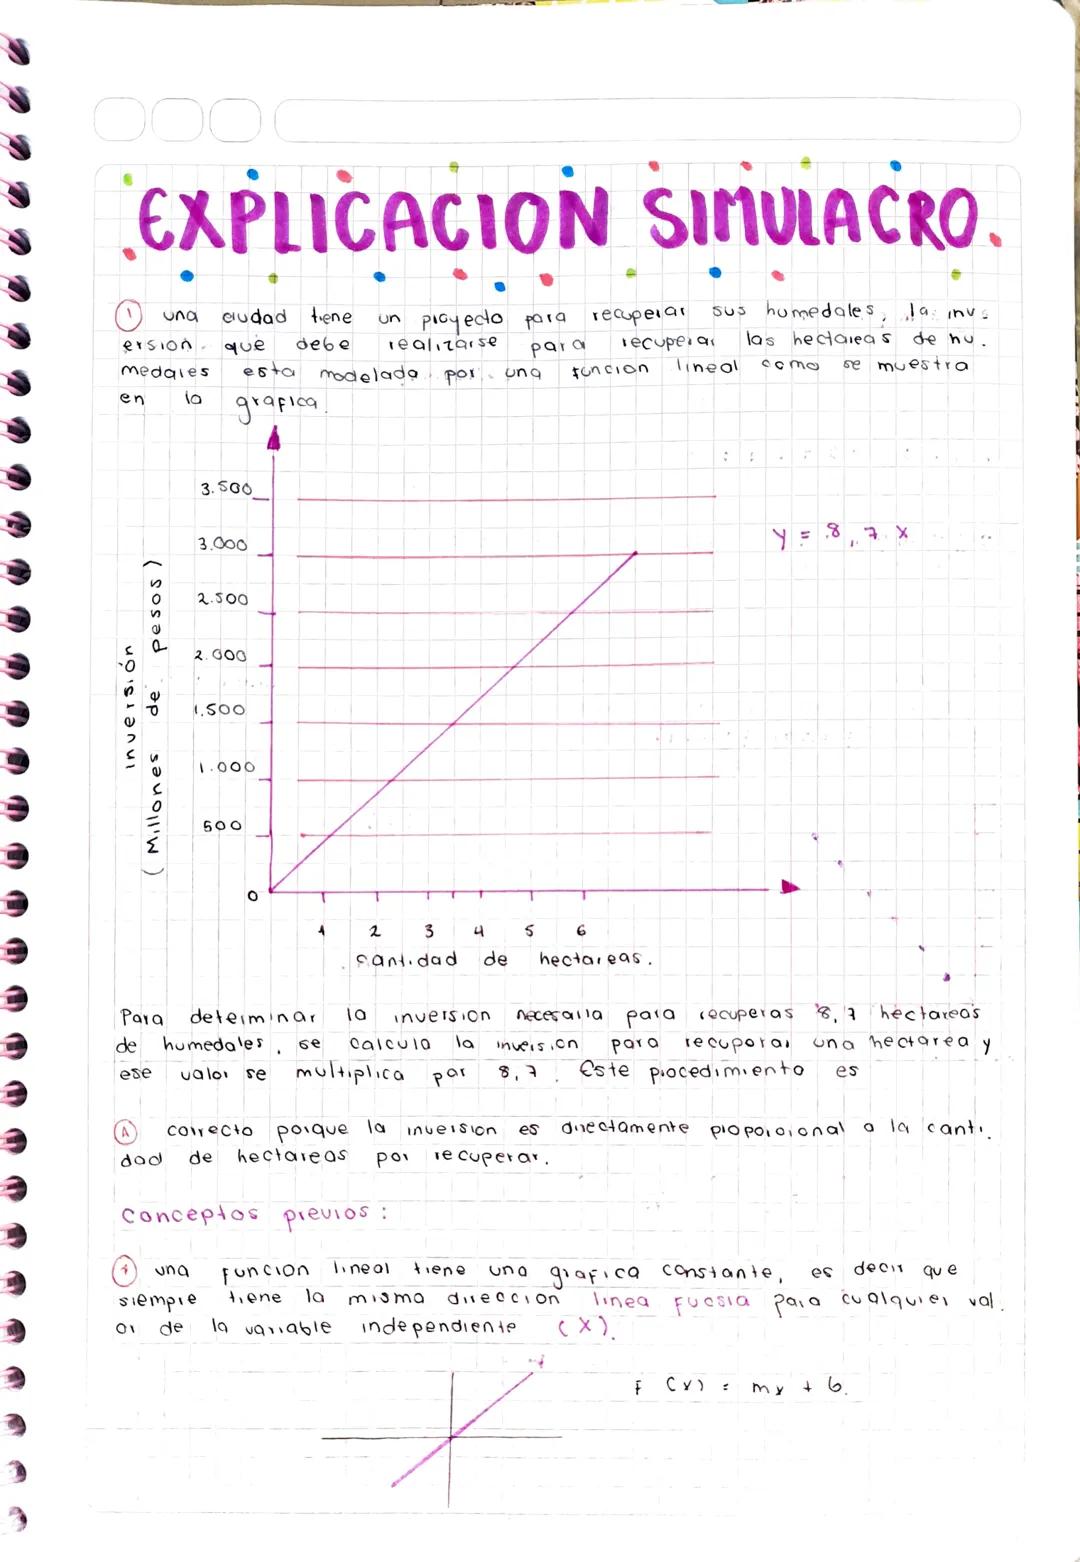 EXPLICACION SIMULACRO.
1 una ciudad tiene un proyecto para recuperar sus humedales, la inv
ersion que debe realizarse para recuperar las hectareas de hu.
medales esta modelada por una funcion lineal como se muestra
en la grafica.
3.500
y = 8,7 x
3.000
2.500
2.000
1.500
1.000
500
0
inversión
(Millones de pesos)
1 2 3 4 5 6
cantidad de hectareas.
Para determinar la inversion necesaria para recuperas 8,7 hectareas
de humedales, se calcula la inversion para recuperar una hectarea y
ese valor se multiplica por 8,7. Este procedimiento es
A correcto porque la inversion es directamente proporcional a la canti.
dad de hectareas por recuperar.
conceptos previos:
una funcion lineal tiene una grafica constante, es decir que
siempre tiene la misma direccion linea fucsia para cualquier val.
or de la variable independiente (x).
f (x) = mx + b.